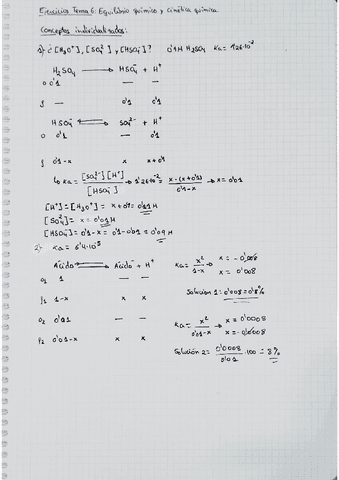 Ejercicios Tema 6: Equilibrio químico y cinética química
Conceptos individualizados:
1) ¿[H₃O⁺], [SO₄²⁻] y [HSO₄⁻]? 0'1M H₂SO₄ Ka = 1'26·10⁻²
H₂SO₄ → HSO₄⁻ + H⁺
o 0'1 — —
f — 0'1 0'1
HSO₄⁻ ⇌ SO₄²⁻ + H⁺
o 0'1 — 0'1
f 0'1-x x x+0'1
↳ Ka = [SO₄²⁻][H⁺] / [HSO₄⁻] → 1'26·10⁻² = x·(x+0'1) / 0'1-x → x = 0'01
[H⁺] = [H₃O⁺] = x+0'1 = 0'11 M
[SO₄²⁻] = x = 0'01 M
[HSO₄⁻] = 0'1-x = 0'1-0'01 = 0'09 M
2) Ka = 6'4·10⁻⁵
Ácido ⇌ Ácido⁻ + H⁺
o₁ 1 — —
f₁ 1-x x x
Ka = x² / 1-x → x = -0'008
x = 0'008
Solución 1 = 0'008 = 0'8%
o₂ 0'01 — —
f₂ 0'01-x x x
Ka = x² / 0'01-x → x = 0'0008
x = -0'0008
Solución 2 = 0'0008 / 0'01 · 100 = 8%